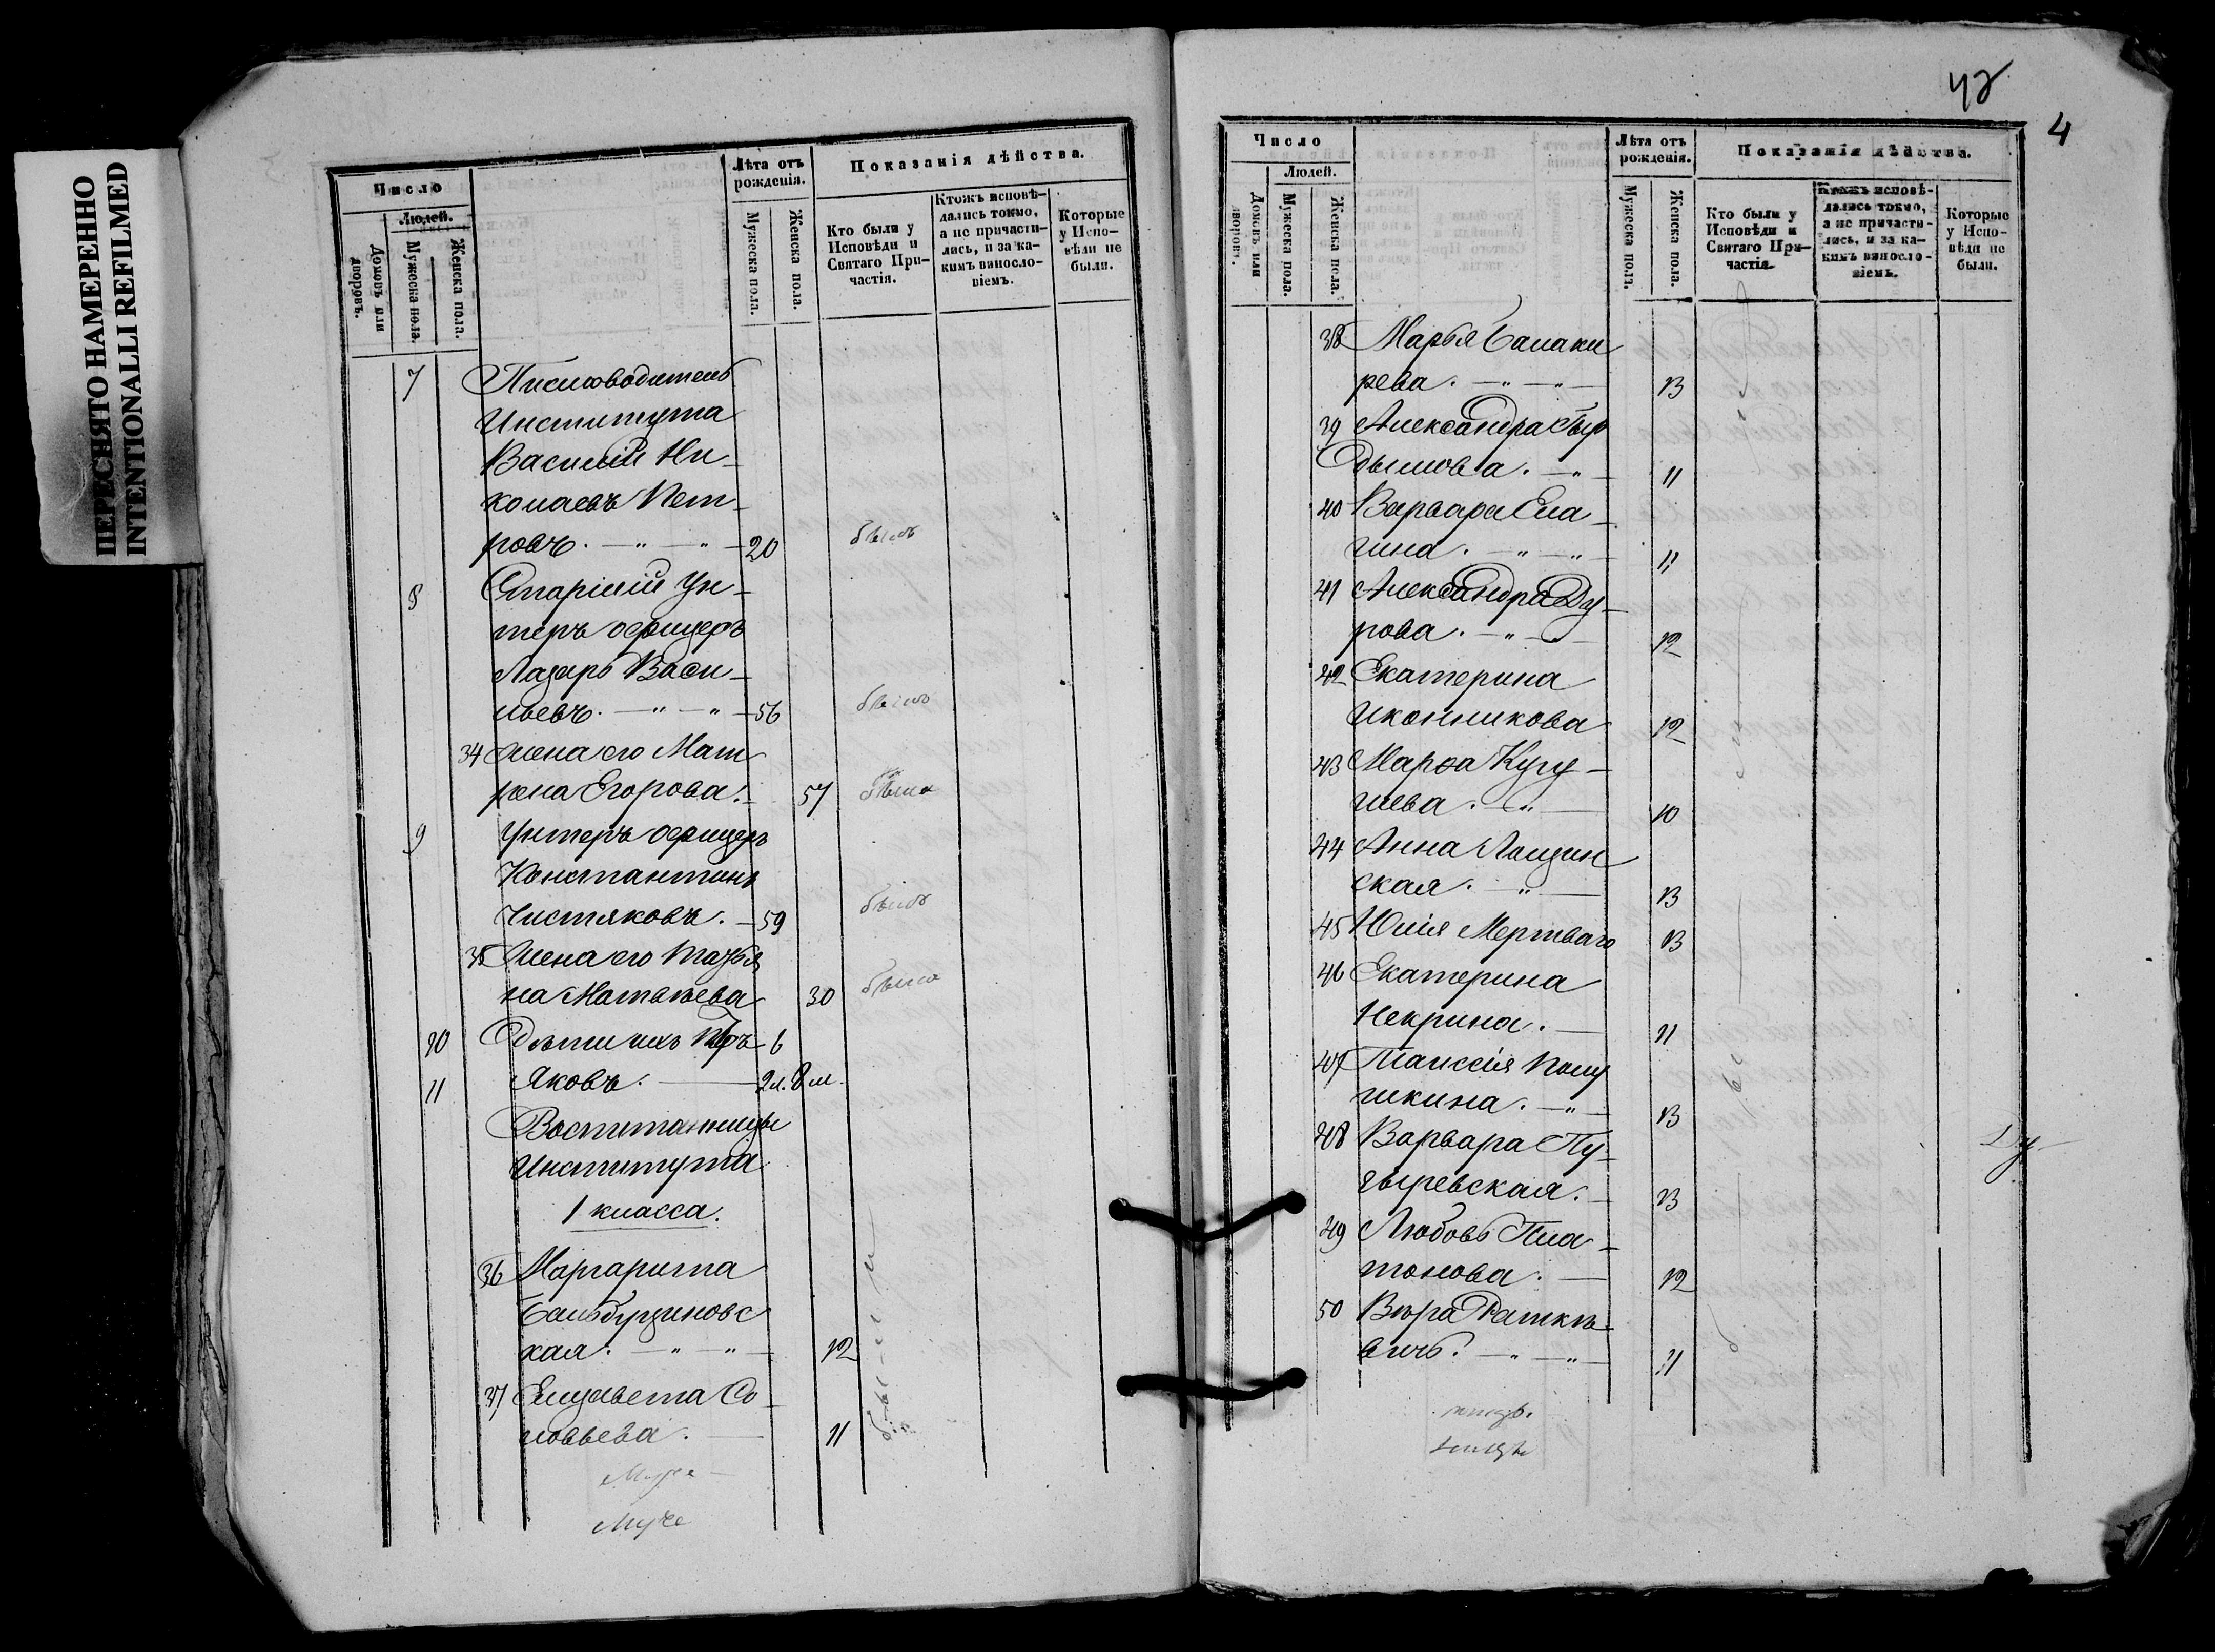 ПЕРЕСНЯТО НАМЕРЕННО
INTENTIONALLI REFILMED
Число
Людей.
Домовъ или дворовъ.
Мужеска пола.
Женска пола.
Лѣта отъ рожденія.
Мужеска пола.
Женска пола.
Показанія дѣйства.
Кто были у Исповѣди и Святаго Причастія.
Ктожъ исповѣдались токмо, а не причастились, и за какимъ винословіемъ.
Которые у Исповѣди не были.
7 Письмоводитель
Института
Василій Ни-
колаевъ Пет-
ровъ. — " — " — 20 былъ
8 Старшій Ун-
теръ офицеръ
Лазарь Васи-
льевъ. — " — " — 56 былъ
34 Жена его Мат
рена Егорова. — 57 была
9 Унтеръ офицеръ
Константинъ
Чистяковъ. — 59 былъ
35 Жена его Татья
на Матвѣева 30 была
10 Дѣти ихъ Петръ 6
11 Яковъ. — 2 л. 8 м.
Воспитанницы
Института
1 класса.
36 Маргарита
Бальбуциновс
кая. — " — " — 12
37 Елизавета Со-
ловьева. — 11
42
4
Число
Людей.
Домовъ или дворовъ.
Мужеска пола.
Женска пола.
Лѣта отъ рожденія.
Мужеска пола.
Женска пола.
Показанія дѣйства.
Кто были у Исповѣди и Святаго Причастія.
Ктожъ исповѣдались токмо, а не причастились, и за какимъ винословіемъ.
Которые у Исповѣди не были.
38 Марья Балаки
рева. — " — " — 13
39 Александра
дымова. — " — 11
40 Варвара Ела-
гина. — " — " — 11
41 Александра Ду-
рова. — " — 12
42 Екатерина
Иконникова 12
43 Марѳа Кугу-
шева. — " — 10
44 Анна Лощин
ская. — " — 13
45 Юлія Мертваго 13
46 Екатерина
Некрина. — 11
47 Таисія Полу
шкина. — " — 13
48 Варвара Пу-
зыревская. — 13
49 Любовь Пла-
тонова. — 12
50 Вѣра Раткѣ-
вичъ. — " — " — 11